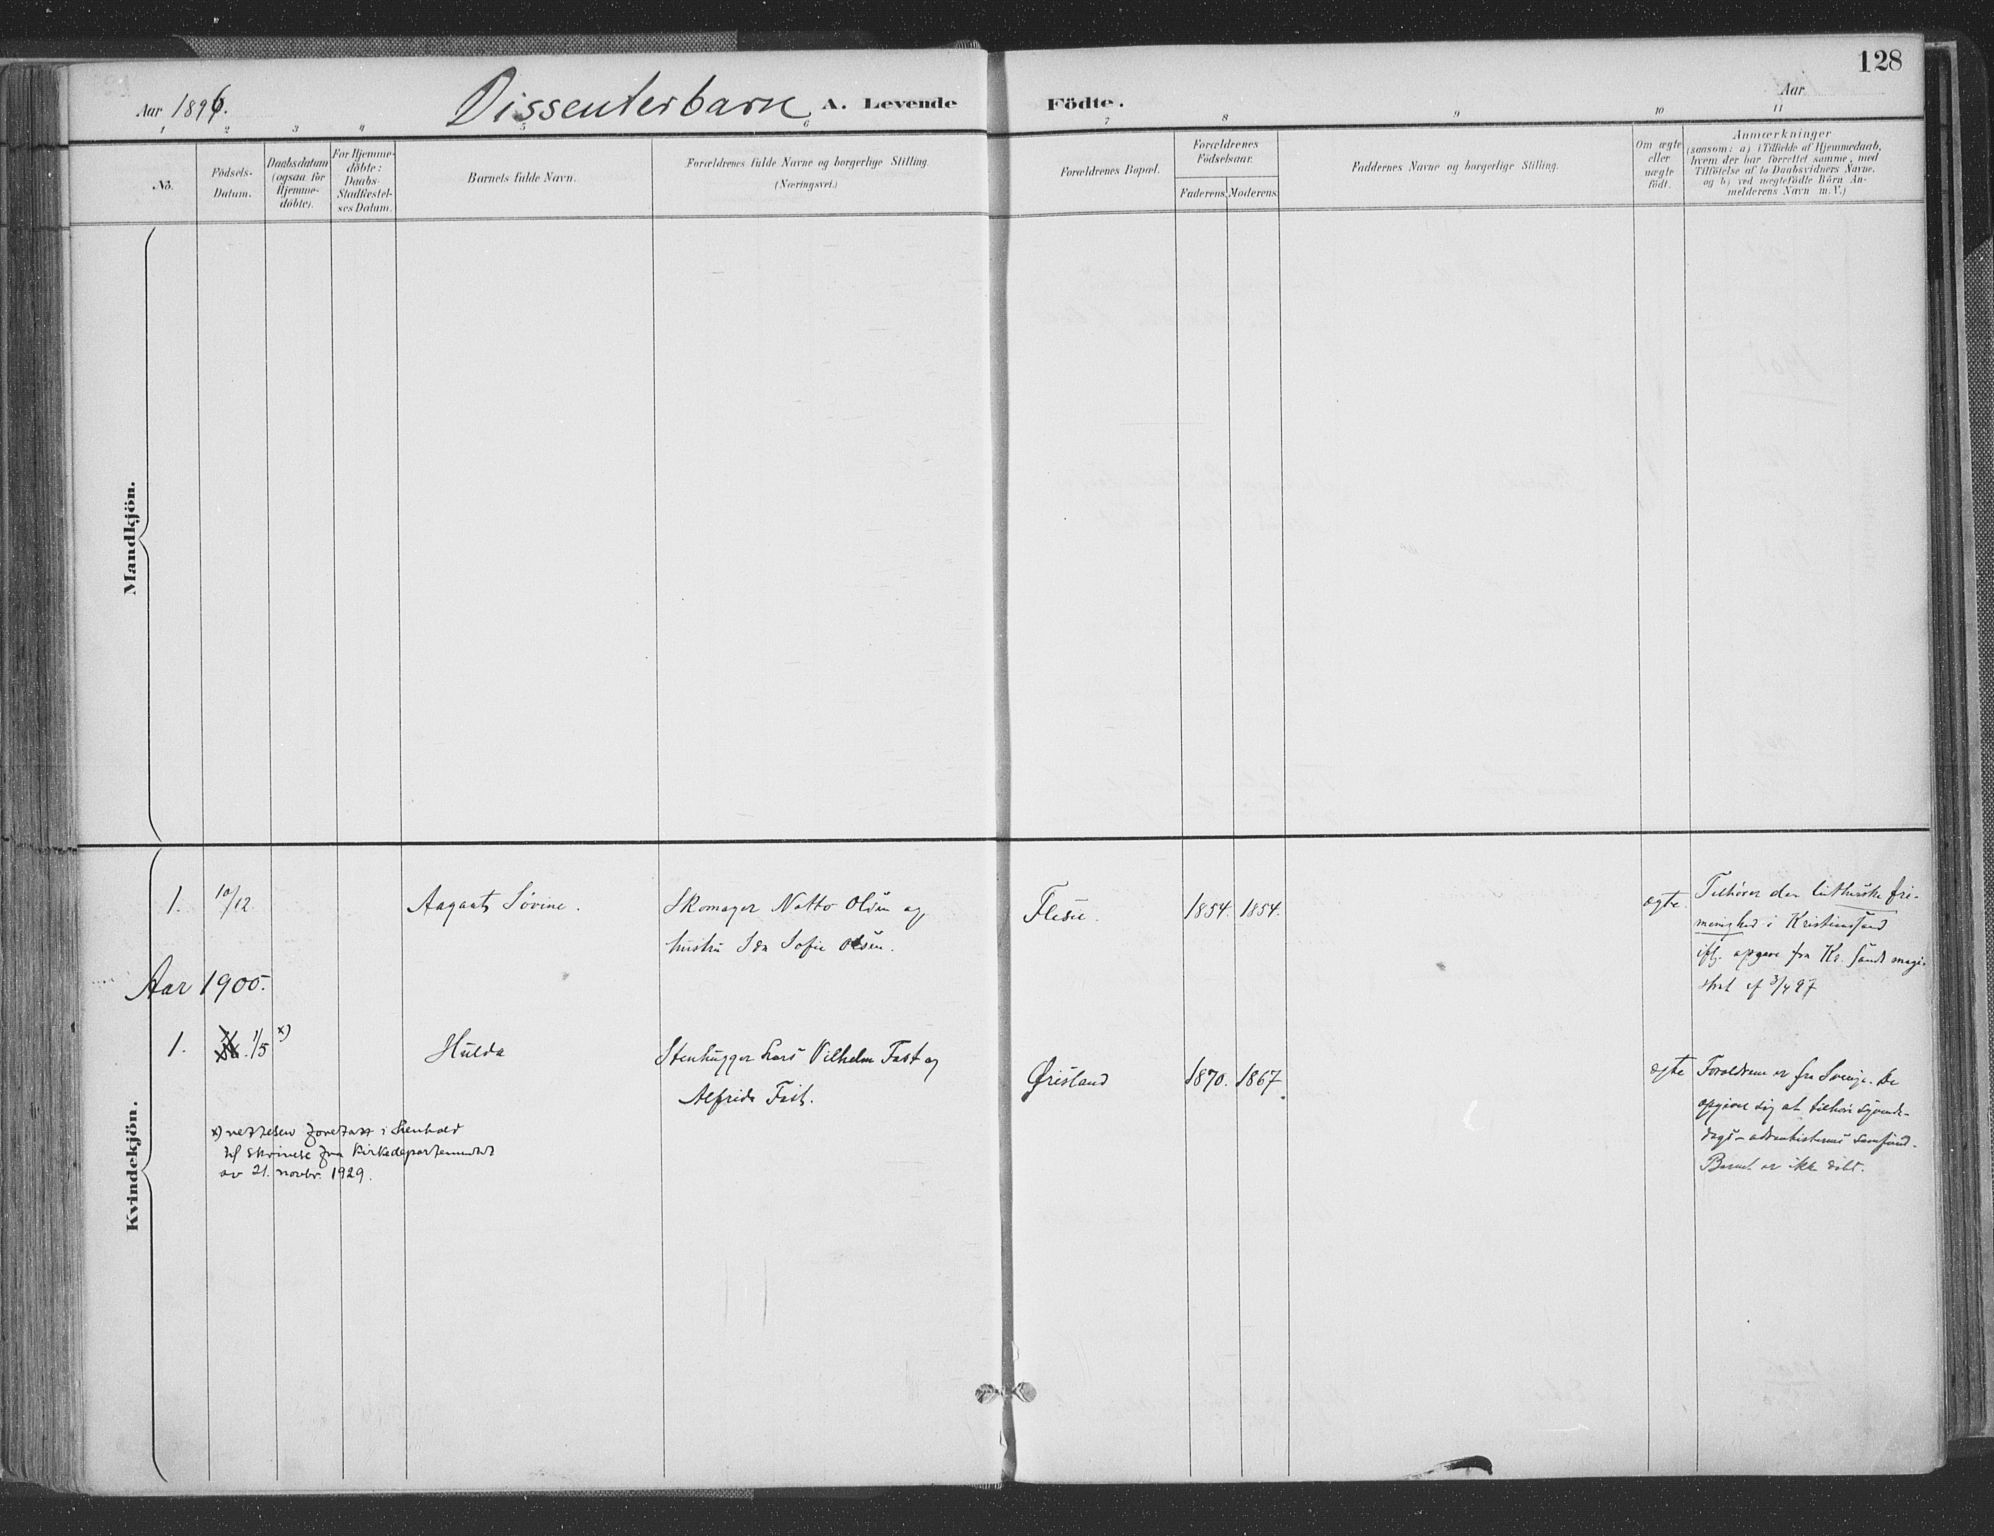 128
Aar 1896. Dissenterbarn A. Levende Födte. Aar
1 2 3 4 5 6 7 8 9 10 11
No.
Födsels-
Datum.
Daabsdatum
(ogsaa for
Hjemme-
döbte).
For Hjemme-
döbte:
Daabs-
Stadfæstel-
ses Datum.
Barnets fulde Navn.
Forældrenes fulde Navne og borgerlige Stilling.
(Næringsvei.)
Forældrenes Bopæl.
Forældrenes
Födselsaar.
Faderens. Moderens.
Faddernes Navne og borgerlige Stilling.
Om ægte
eller
uægte
födt.
Anmærkninger
(saasom: a) i Tilfælde af Hjemmedaab,
hvem der har forrettet samme, med
Tilföielse af to Daabsvidners Navne,
og b) ved uægtefödte Börn An-
melderens Navn m. V.)
Mandkjön.
Kvindekjön.
1. 10/12 Aagaats Sovine. Skomager Natto Olsen og
hustru Ida Sofie Olsen.
Flesie. 1854. 1854. ægte.
Tilhører den lutherske fri-
menighed i Kristianssand
ifl. opgave fra Kr. sands magi-
strat af 3/4 97
Aar 1900.
1. 1/5 x) Hulda Stenhugger Lars Vilhelm Fast og
Alfrida Fast.
Øiesland 1870. 1867. ægte
Forældrene er fra Sverige. De
opgiver sig at tilhøre syvende-
dags-adventisternes samfund.
Barnet er ikke døbt.
x) rettelsen foretatt i henhold
til skrivelse fra Kirkedepartementet
av 21. novbr. 1929.